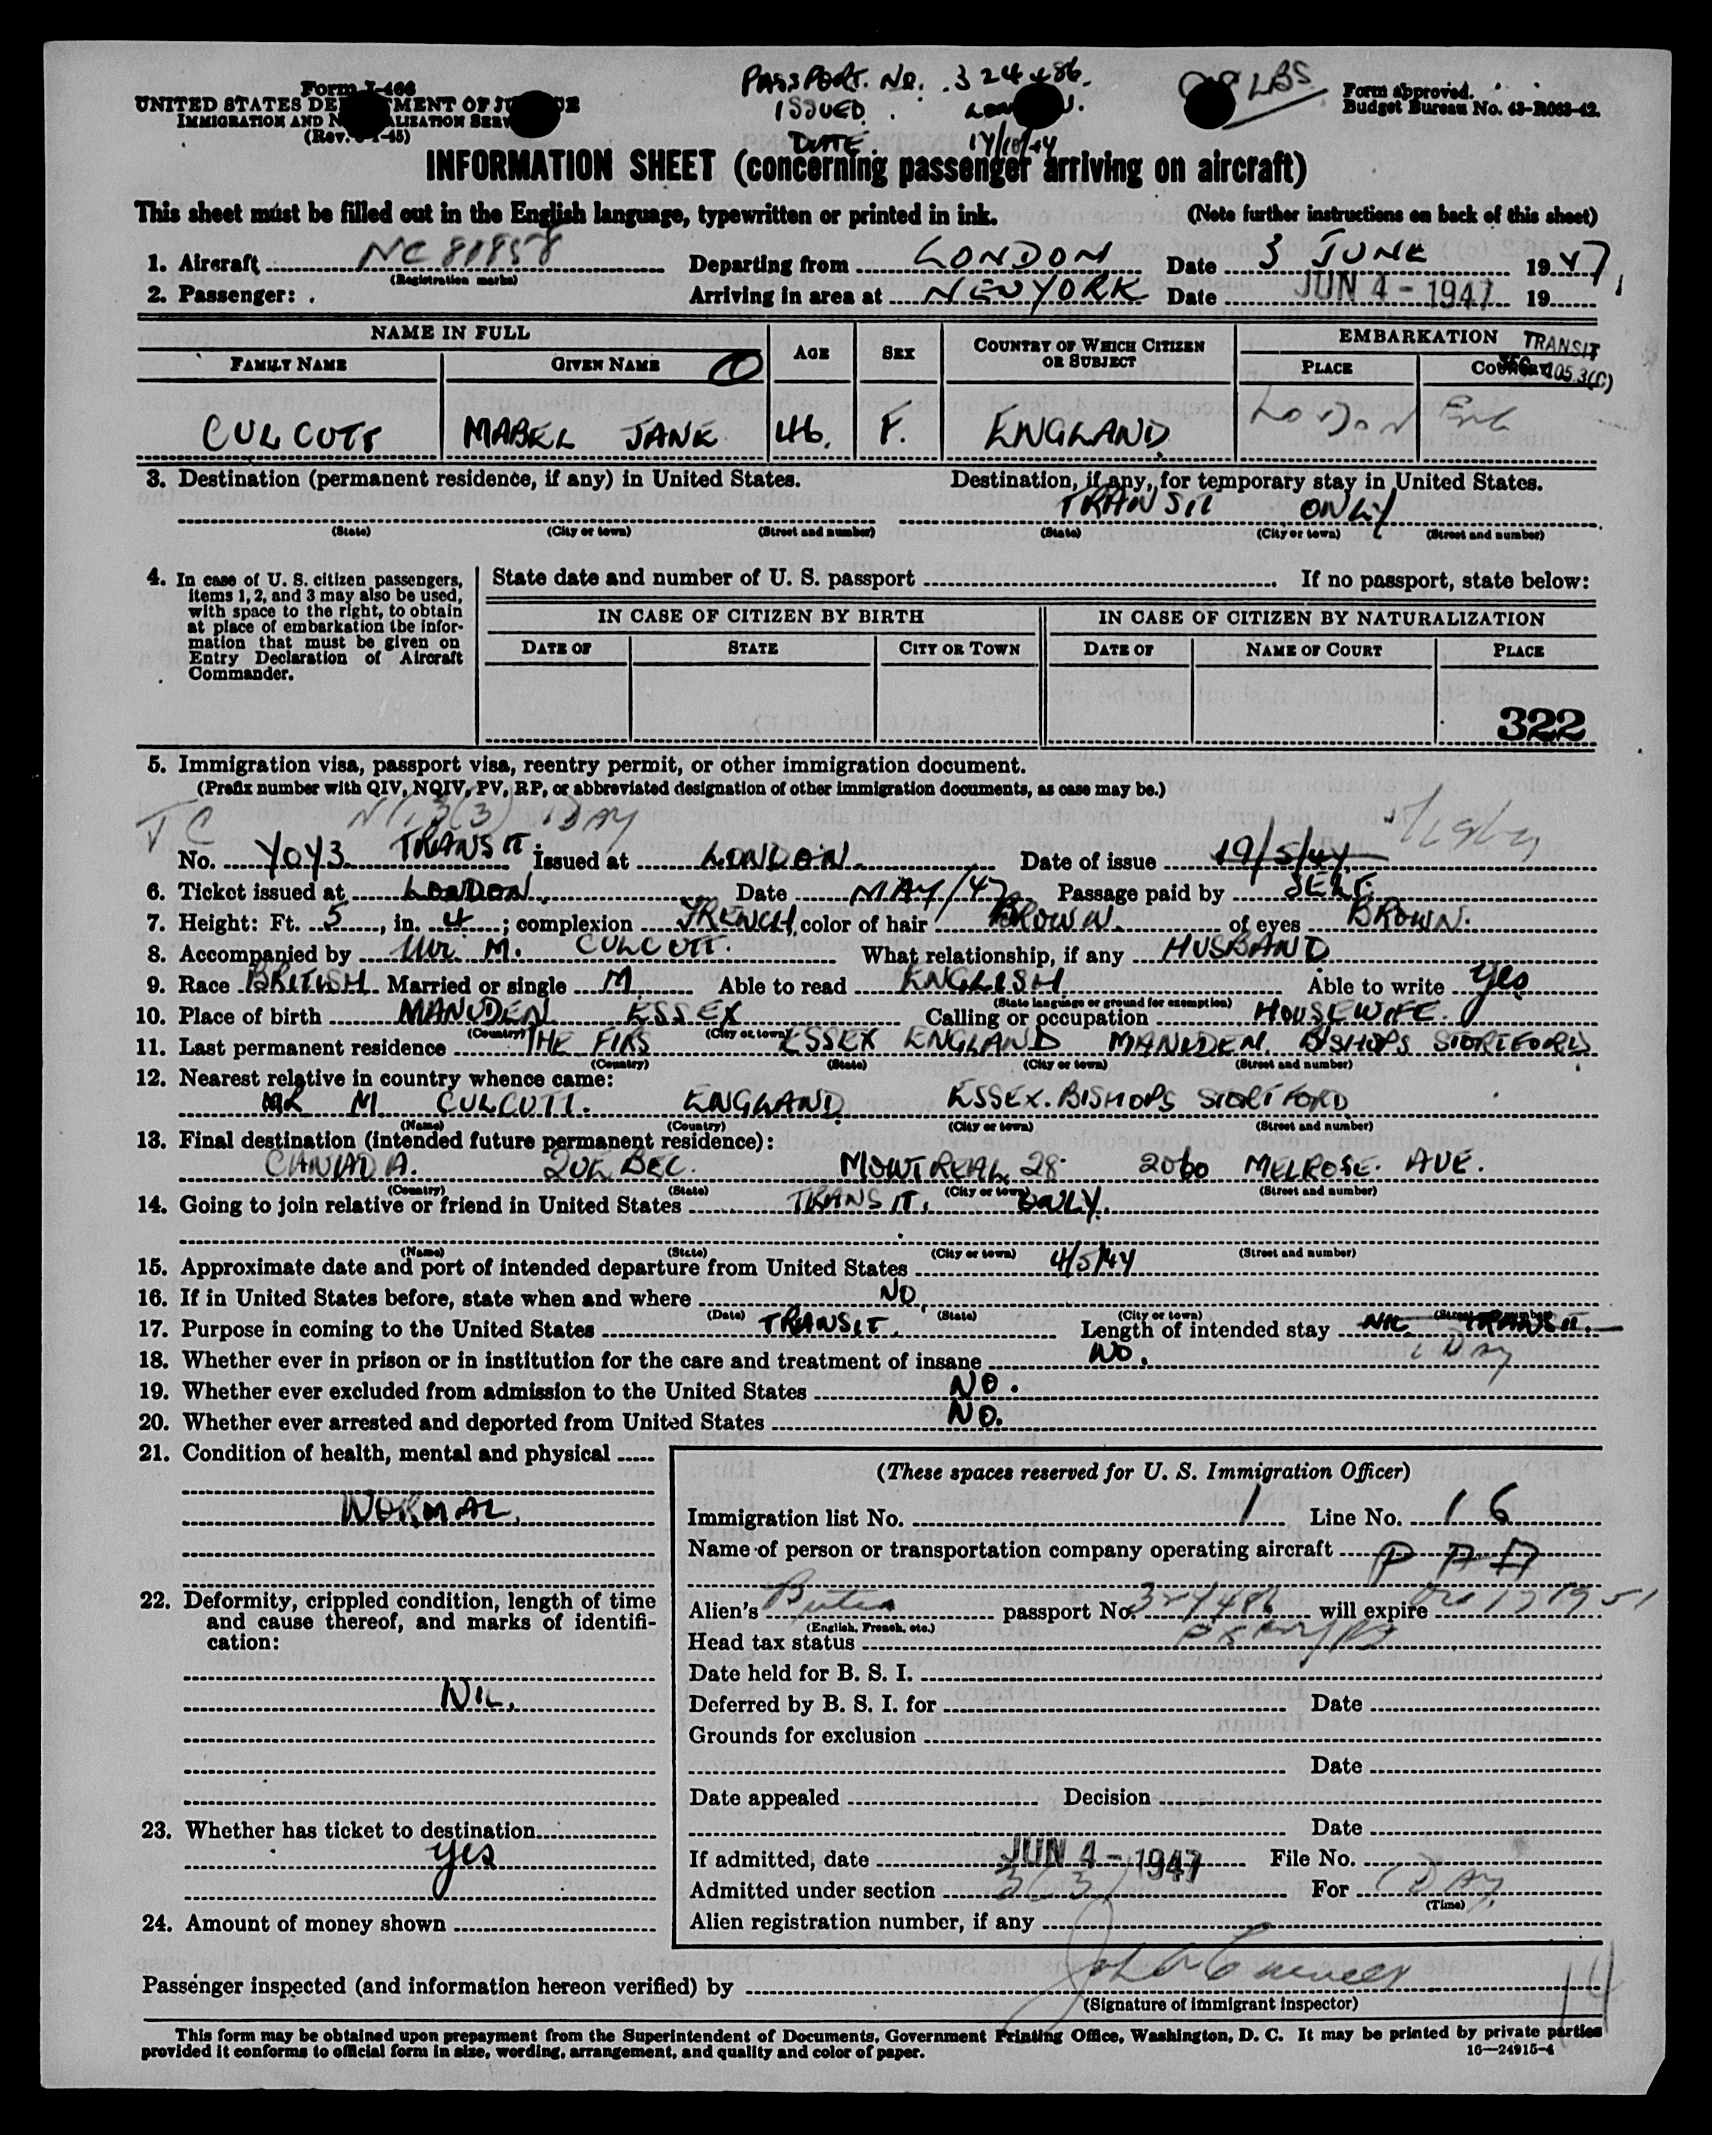 PASSPORT. No. 324486.
ISSUED.
DATE. 17/10/44
LBS
Form I-466
UNITED STATES DEPARTMENT OF JUSTICE
IMMIGRATION AND NATURALIZATION SERVICE
(Rev. -45)
Form approved.
Budget Bureau No. 43-R063-42.
INFORMATION SHEET (concerning passenger arriving on aircraft)
This sheet must be filled out in the English language, typewritten or printed in ink. (Note further instructions on back of this sheet)
1. Aircraft NC 81858 Departing from LONDON Date 3 JUNE 1947
(Registration marks)
2. Passenger: Arriving in area at NEW YORK Date JUN 4 - 1947 19
NAME IN FULL AGE SEX COUNTRY OF WHICH CITIZEN OR SUBJECT EMBARKATION TRANSIT
FAMILY NAME GIVEN NAME PLACE COUNTRY 105.3(C)
CULCUTT MABEL JANE 46. F. ENGLAND. London Eng
3. Destination (permanent residence, if any) in United States. Destination, if any, for temporary stay in United States.
TRANSIT ONLY
(State) (City or town) (Street and number) (State) (City or town) (Street and number)
4. In case of U. S. citizen passengers, items 1, 2, and 3 may also be used, with space to the right, to obtain at place of embarkation the information that must be given on Entry Declaration of Aircraft Commander.
State date and number of U. S. passport If no passport, state below:
IN CASE OF CITIZEN BY BIRTH IN CASE OF CITIZEN BY NATURALIZATION
DATE OF STATE CITY OR TOWN DATE OF NAME OF COURT PLACE
322
5. Immigration visa, passport visa, reentry permit, or other immigration document.
(Prefix number with QIV, NQIV, PV, RP, or abbreviated designation of other immigration documents, as case may be.)
TC NI 3(3) 1 DAY
No. 4043 TRANSIT. Issued at LONDON. Date of issue 19/5/47
6. Ticket issued at LONDON. Date MAY/47 Passage paid by SELF.
7. Height: Ft. 5, in. 4; complexion FRENCH, color of hair BROWN. of eyes BROWN.
8. Accompanied by Mr. M. CULCUTT. What relationship, if any HUSBAND
9. Race BRITISH Married or single M Able to read ENGLISH Able to write yes
(State language or ground for exemption)
10. Place of birth MANUDEN ESSEX Calling or occupation HOUSEWIFE.
(Country) (City or town)
11. Last permanent residence THE FIRS ESSEX ENGLAND MANUDEN. BISHOPS STORTFORD
(Country) (State) (City or town) (Street and number)
12. Nearest relative in country whence came:
MR M CULCUTT. ENGLAND ESSEX. BISHOPS STORTFORD
(Name) (Country) (City or town) (Street and number)
13. Final destination (intended future permanent residence):
CANADA. QUEBEC. MONTREAL 28. 2060 MELROSE. AVE.
(Country) (State) (City or town) (Street and number)
14. Going to join relative or friend in United States TRANSIT. ONLY.
(Name) (State) (City or town) (Street and number)
15. Approximate date and port of intended departure from United States 4/5/47
16. If in United States before, state when and where NO
(Date) (State) (City or town) (Street and number)
17. Purpose in coming to the United States TRANSIT. Length of intended stay NIL TRANSIT.
1 Day
18. Whether ever in prison or in institution for the care and treatment of insane NO.
19. Whether ever excluded from admission to the United States NO.
20. Whether ever arrested and deported from United States NO.
21. Condition of health, mental and physical
NORMAL.
22. Deformity, crippled condition, length of time and cause thereof, and marks of identification:
NIL.
23. Whether has ticket to destination
yes
24. Amount of money shown
(These spaces reserved for U. S. Immigration Officer)
Immigration list No. 1 Line No. 16
Name of person or transportation company operating aircraft P A A
Alien's passport No. 324486 will expire Oct 17 1951
(English, French, etc.)
Head tax status
Date held for B. S. I.
Deferred by B. S. I. for Date
Grounds for exclusion
Date
Date appealed Decision
Date
If admitted, date JUN 4 - 1947 File No.
Admitted under section 3(3) For 1 DAY
(Time)
Alien registration number, if any
Passenger inspected (and information hereon verified) by
(Signature of immigrant inspector)
14
This form may be obtained upon prepayment from the Superintendent of Documents, Government Printing Office, Washington, D. C. It may be printed by private parties
provided it conforms to official form in size, wording, arrangement, and quality and color of paper. 16—24915-4